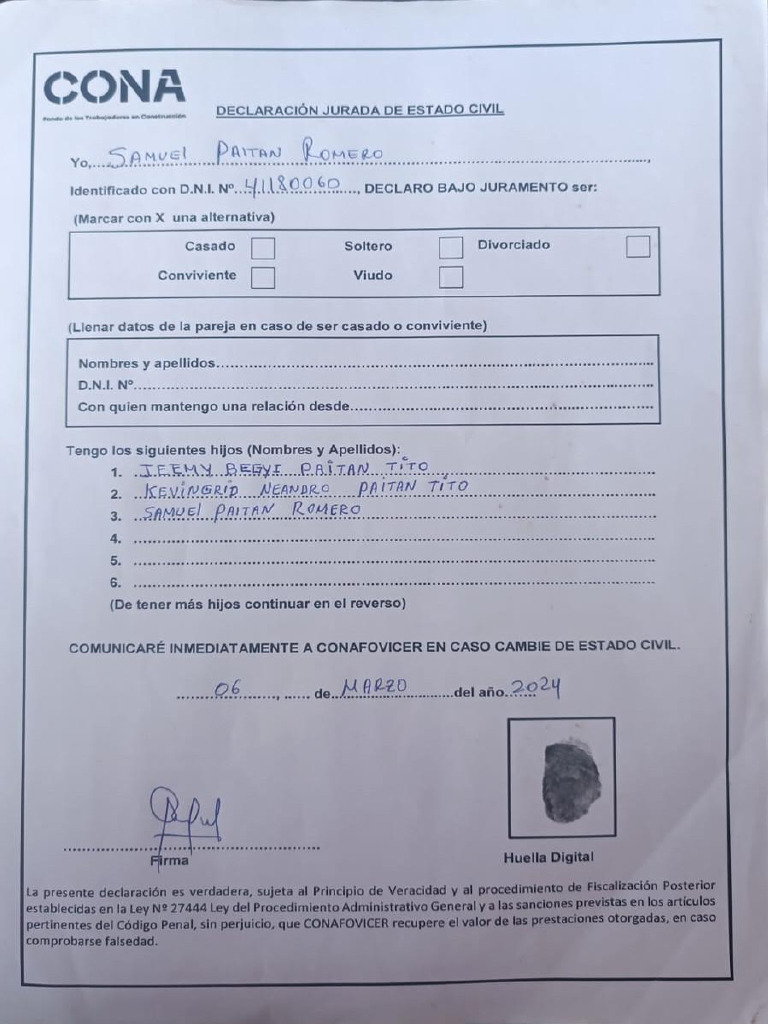 CONA
Fondo de los Trabajadores en Construcción
DECLARACIÓN JURADA DE ESTADO CIVIL
Yo, SAMUEL PAITAN ROMERO,
Identificado con D.N.I. Nº 41180060, DECLARO BAJO JURAMENTO ser:
(Marcar con X una alternativa)
Casado Soltero Divorciado
Conviviente Viudo
(Llenar datos de la pareja en caso de ser casado o conviviente)
Nombres y apellidos
D.N.I. Nº
Con quien mantengo una relación desde
Tengo los siguientes hijos (Nombres y Apellidos):
1. PAITAN TITO
2. KEVINGRID NEANDRO PAITAN TITO
3. SAMUEL PAITAN ROMERO
4.
5.
6.
(De tener más hijos continuar en el reverso)
COMUNICARÉ INMEDIATAMENTE A CONAFOVICER EN CASO CAMBIE DE ESTADO CIVIL.
06, de MARZO del año 2024
Firma
Huella Digital
La presente declaración es verdadera, sujeta al Principio de Veracidad y al procedimiento de Fiscalización Posterior
establecidas en la Ley Nº 27444 Ley del Procedimiento Administrativo General y a las sanciones previstas en los artículos
pertinentes del Código Penal, sin perjuicio, que CONAFOVICER recupere el valor de las prestaciones otorgadas, en caso
comprobarse falsedad.